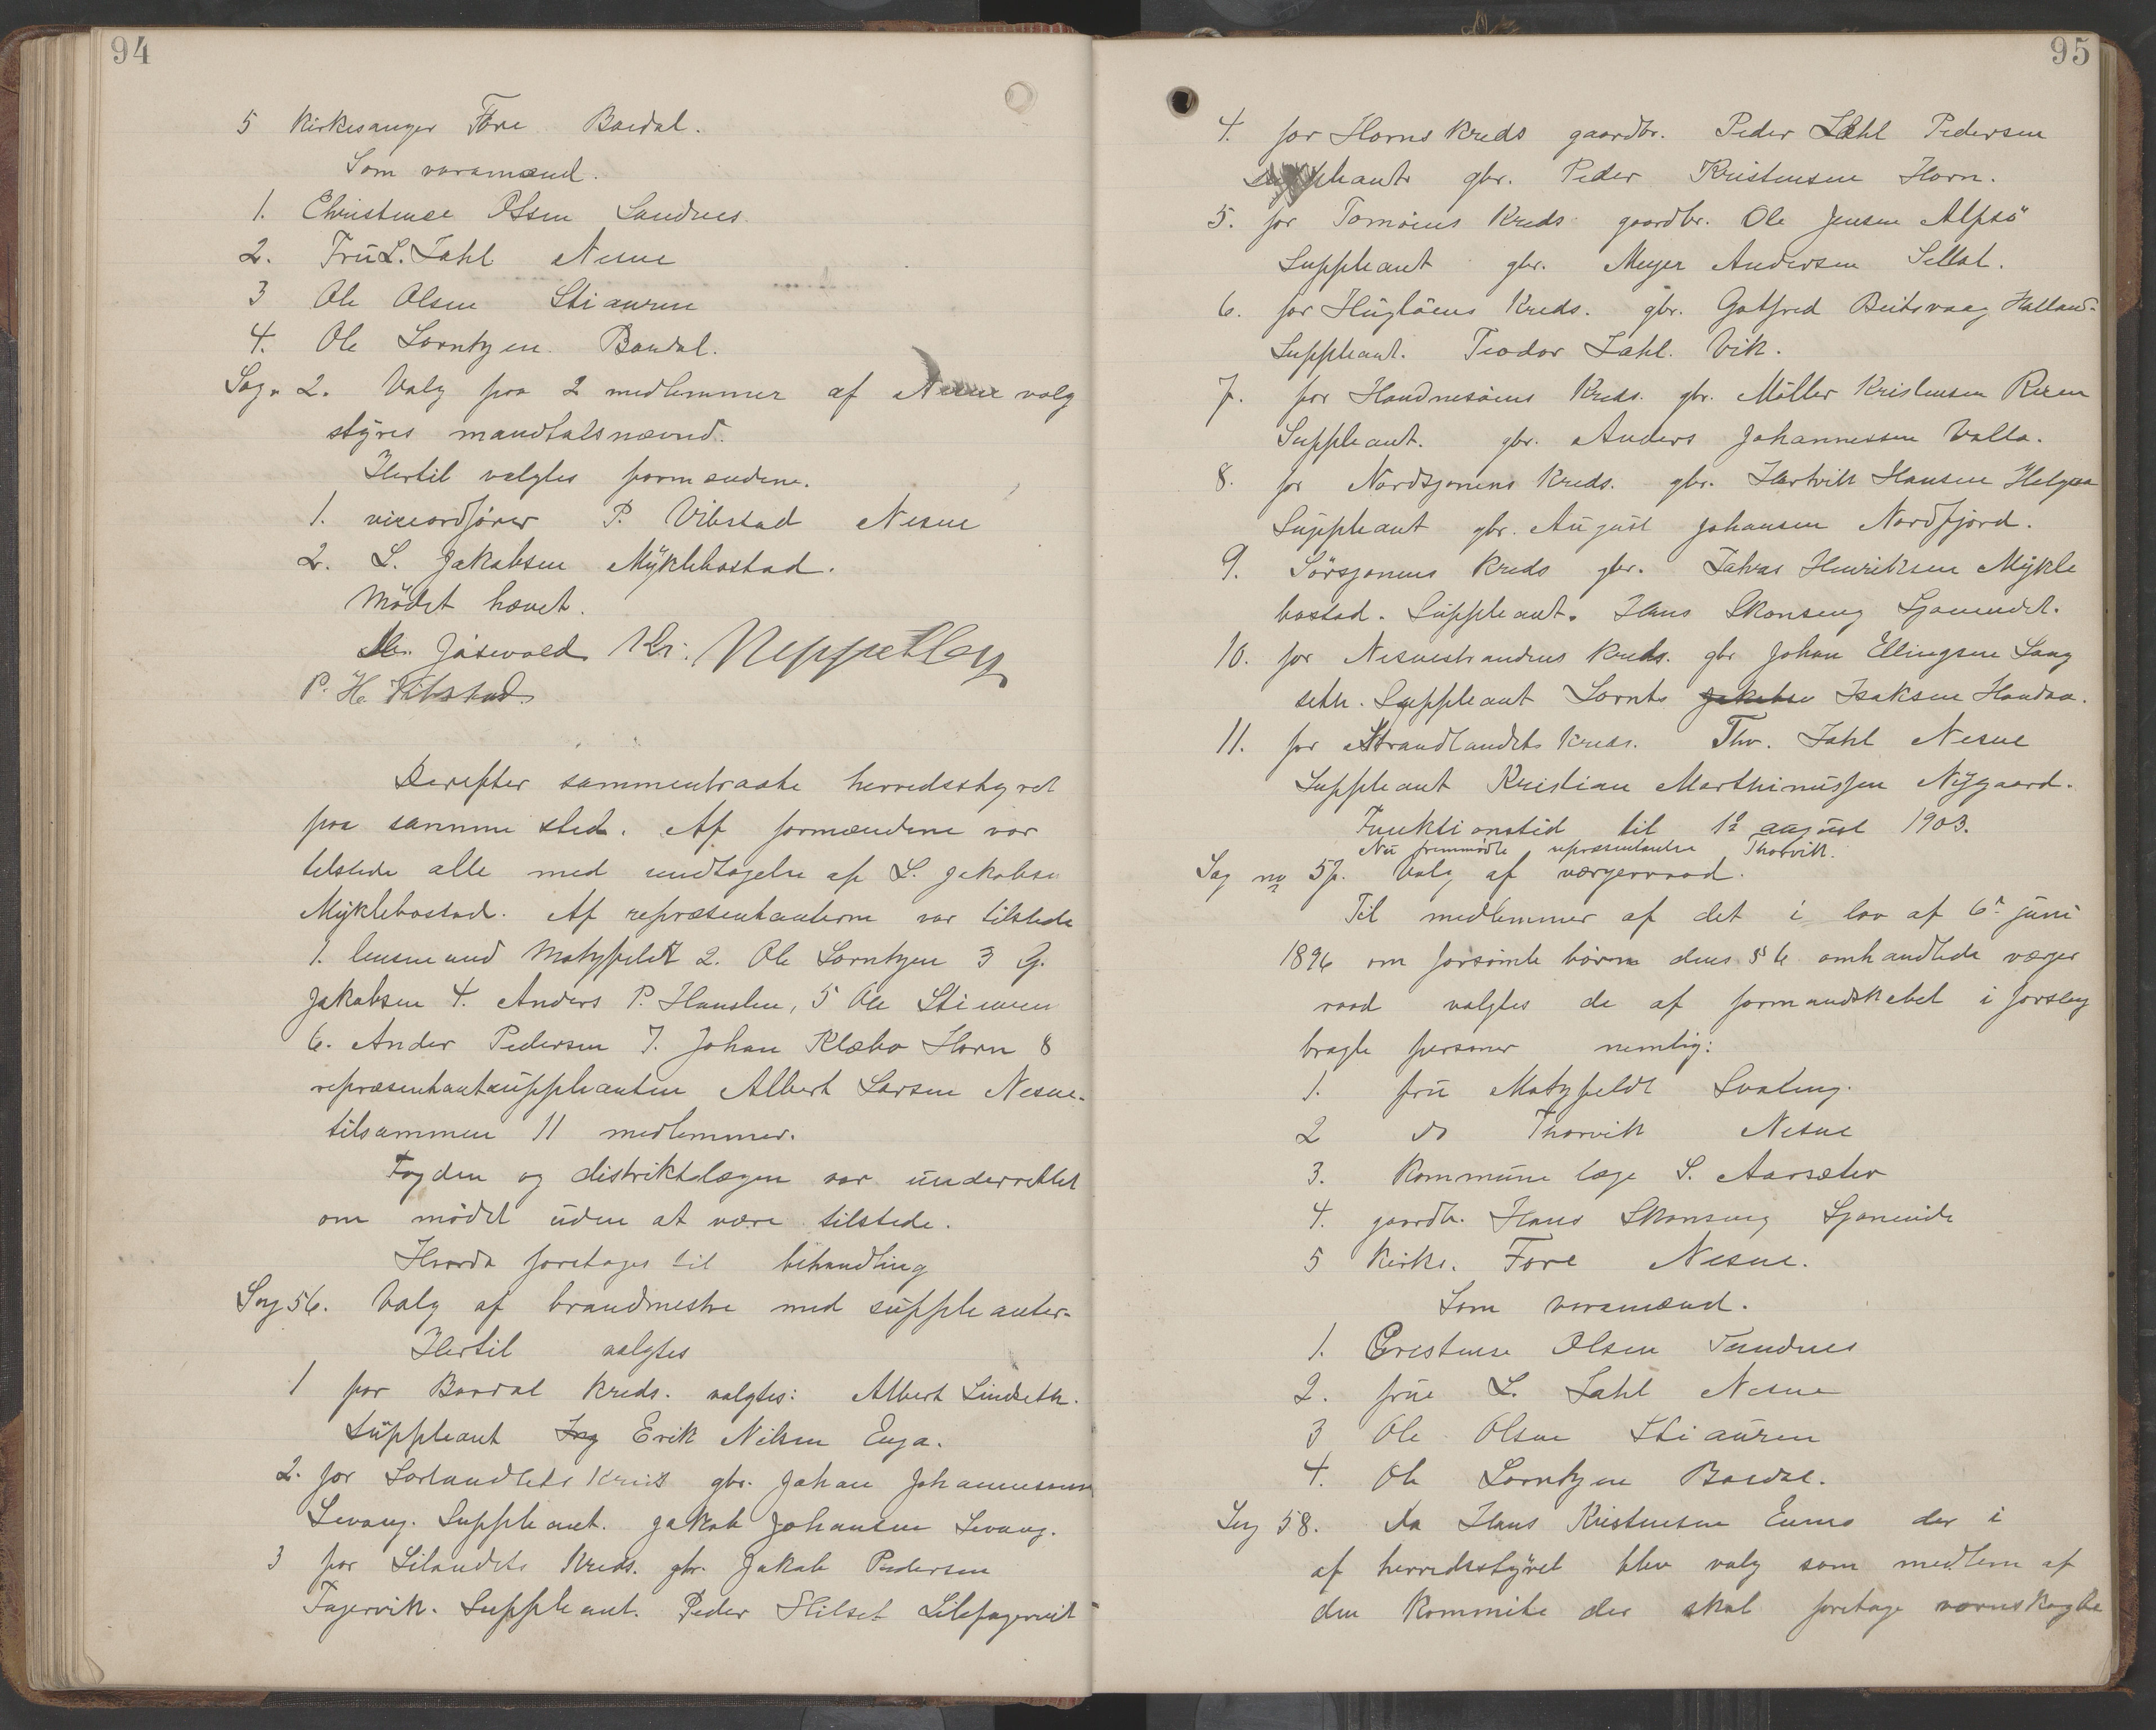 94
5 Kirkesanger Fore Bardal.
Som varamænd.
1. Christense Olsen Sandnes
2. Frü L. Zahl Nesne
3 Ole Olsen Stiauren
4. Ole Lorntzen Bardal.
Sag. 2. Valg paa 2 medlemmer af Nesne valg
styres mandtalsnævnd.
Hertil valgtes formændene.
1. viceordförer P. Vibstad Nesne
2. L. Jakobsen Myklebostad.
Mödet hævet.
Kr.
P. H. Vibstad
Derefter sammentraate herredsstyret
paa samme sted. Af formændene var
tilstede alle med undtagelse af L. Jakobsen
Myklebostad. Af repræsentanterne var tilstede
1. lensmand Motzfeldt 2. Ole Lorntzen 3 G.
Jakobsen 4. Anders P. Hanslen, 5 Ole Stiauren
6. Ander Pedersen 7. Johan Klæbo Horn 8
repræsentantsüppleanten Albert Larsen Nesne.
tilsammen 11 medlemmer.
Fogden og distriktslægen var ünderrettet
om mödet üden at være tilstede.
Hvorda foretages til behandling
Sag 56. Valg af brandmestre med süppleanter.
Hertil valgtes
1 for Bardal Kreds. valgtes: Albert Lindseth.
Süppleant Ing Erik Nilsen Enga.
2. for Sorlandets Kreds gbr. Johan Johannessen
Levang. Suppleant. Jakob Johansen Levang.
3 for Lilandets Kreds. gbr. Jakob Pedersen
Fagervik. Suppleant. Peder Slilset Lilefagervik
95
4. for Horns Kreds gaardbr. Peder Zahl Pedersen
Suppleant gbr. Peder Kristensen Horn.
5. for Tomöens Kreds gaardbr. Ole Jensen Alpsö
Suppleant gbr. Meyer Andersen Silkæt.
6. for Hüglöens Kreds. gbr. Gotfred Beitsvaag Halland-
Suppleant. Teodor Zahl. Vik.
7. for Handnesöens Kreds. gbr. Möller Kristensen Reren
Suppleant. gbr. Anders Johannessen Valla.
8. for Nordsjonens Kreds. gbr. Hartvik Hansen Helgaa
Süppleant gbr. Aügüst Johansen Nordfjord.
9. Sörsjonens Kreds gbr. Zahras Henriksen Mykle
bostad. Süppleant. Hans Skonseng Sjonendet.
10. for Nesnestrandens Kreds. gbr Johan Ellingsen Lang
seth. Suppleant Lornts Jakobse Isaksen Handaa.
11. for Strandlandets Kreds. Thv. Zahl Nesne
Suppleant Kristian Marthinüssen Nygaard.
Funktionstid til 1ste august 1903.
Nü fremmödte repræsentanten Thorvik.
Sag no 57. Valg af værgeraad.
Til medlemmer af det i lov af 6te jüni
1896 om forsömte börn dens § 6 omhandlede værge
raad valgtes de af formandskabet i forslag
bragte personer nemlig:
1. frü Motzfeldt Svaleng.
2 do Thorvik Nesne
3. Kommüne læge S. Aarsæter
4. gaardbr. Hans Skonseng Sjoneide
5 Kirks. Fore Nesne.
Som varamænd.
1. Cristense Olsen Sandnes
2. frue L. Zahl Nesne
3 Ole Olsen Stiaüren
4. Ole Lorntzen Bardal.
Sag 58. Da Hans Kristensen Enmo der i
af herredsstyret blev valg som medlem af
den Kommite der skal foretage